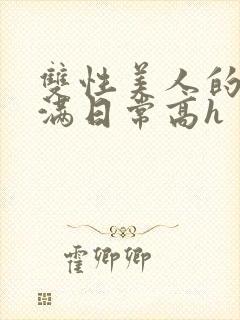 雙性美人的
滿日常高h
霍卿卿